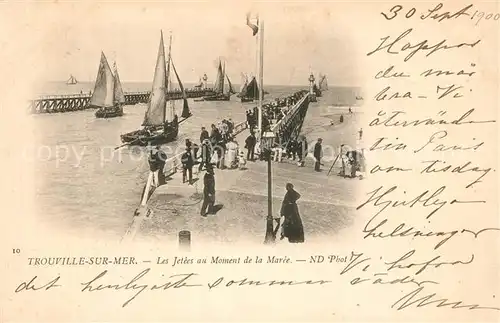 30 Sept. 1900
Hoppas
du mår
bra - Vi
återvänder
till Paris
om tisdag.
Hjertliga
helsningar
10
TROUVILLE-SUR-MER. — Les Jetées au Moment de la Marée. — ND Phot
Vi hafva
det herrligaste sommar väder